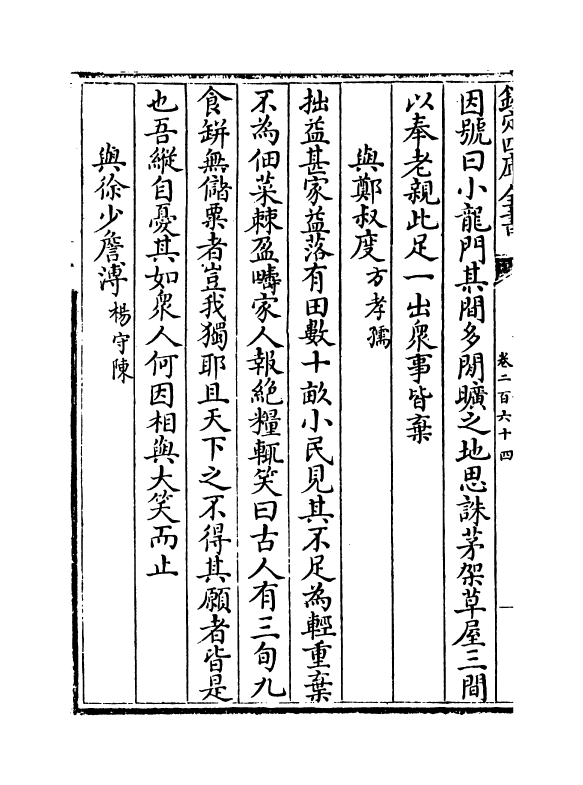 欽定四庫全書
卷二百六十四
因號曰小龍門其間多閒曠之地思誅茅架草屋三間
以奉老親此足一出衆事皆棄
與鄭叔度 方孝孺
拙益甚家益落有田數十畝小民見其不足為輕重棄
不為佃菜棘盈疇家人報絶糧輒笑曰古人有三旬九
食缾無儲粟者豈我獨耶且天下之不得其願者皆是
也吾縱自憂其如衆人何因相與大笑而止
與徐少詹溥 楊守陳